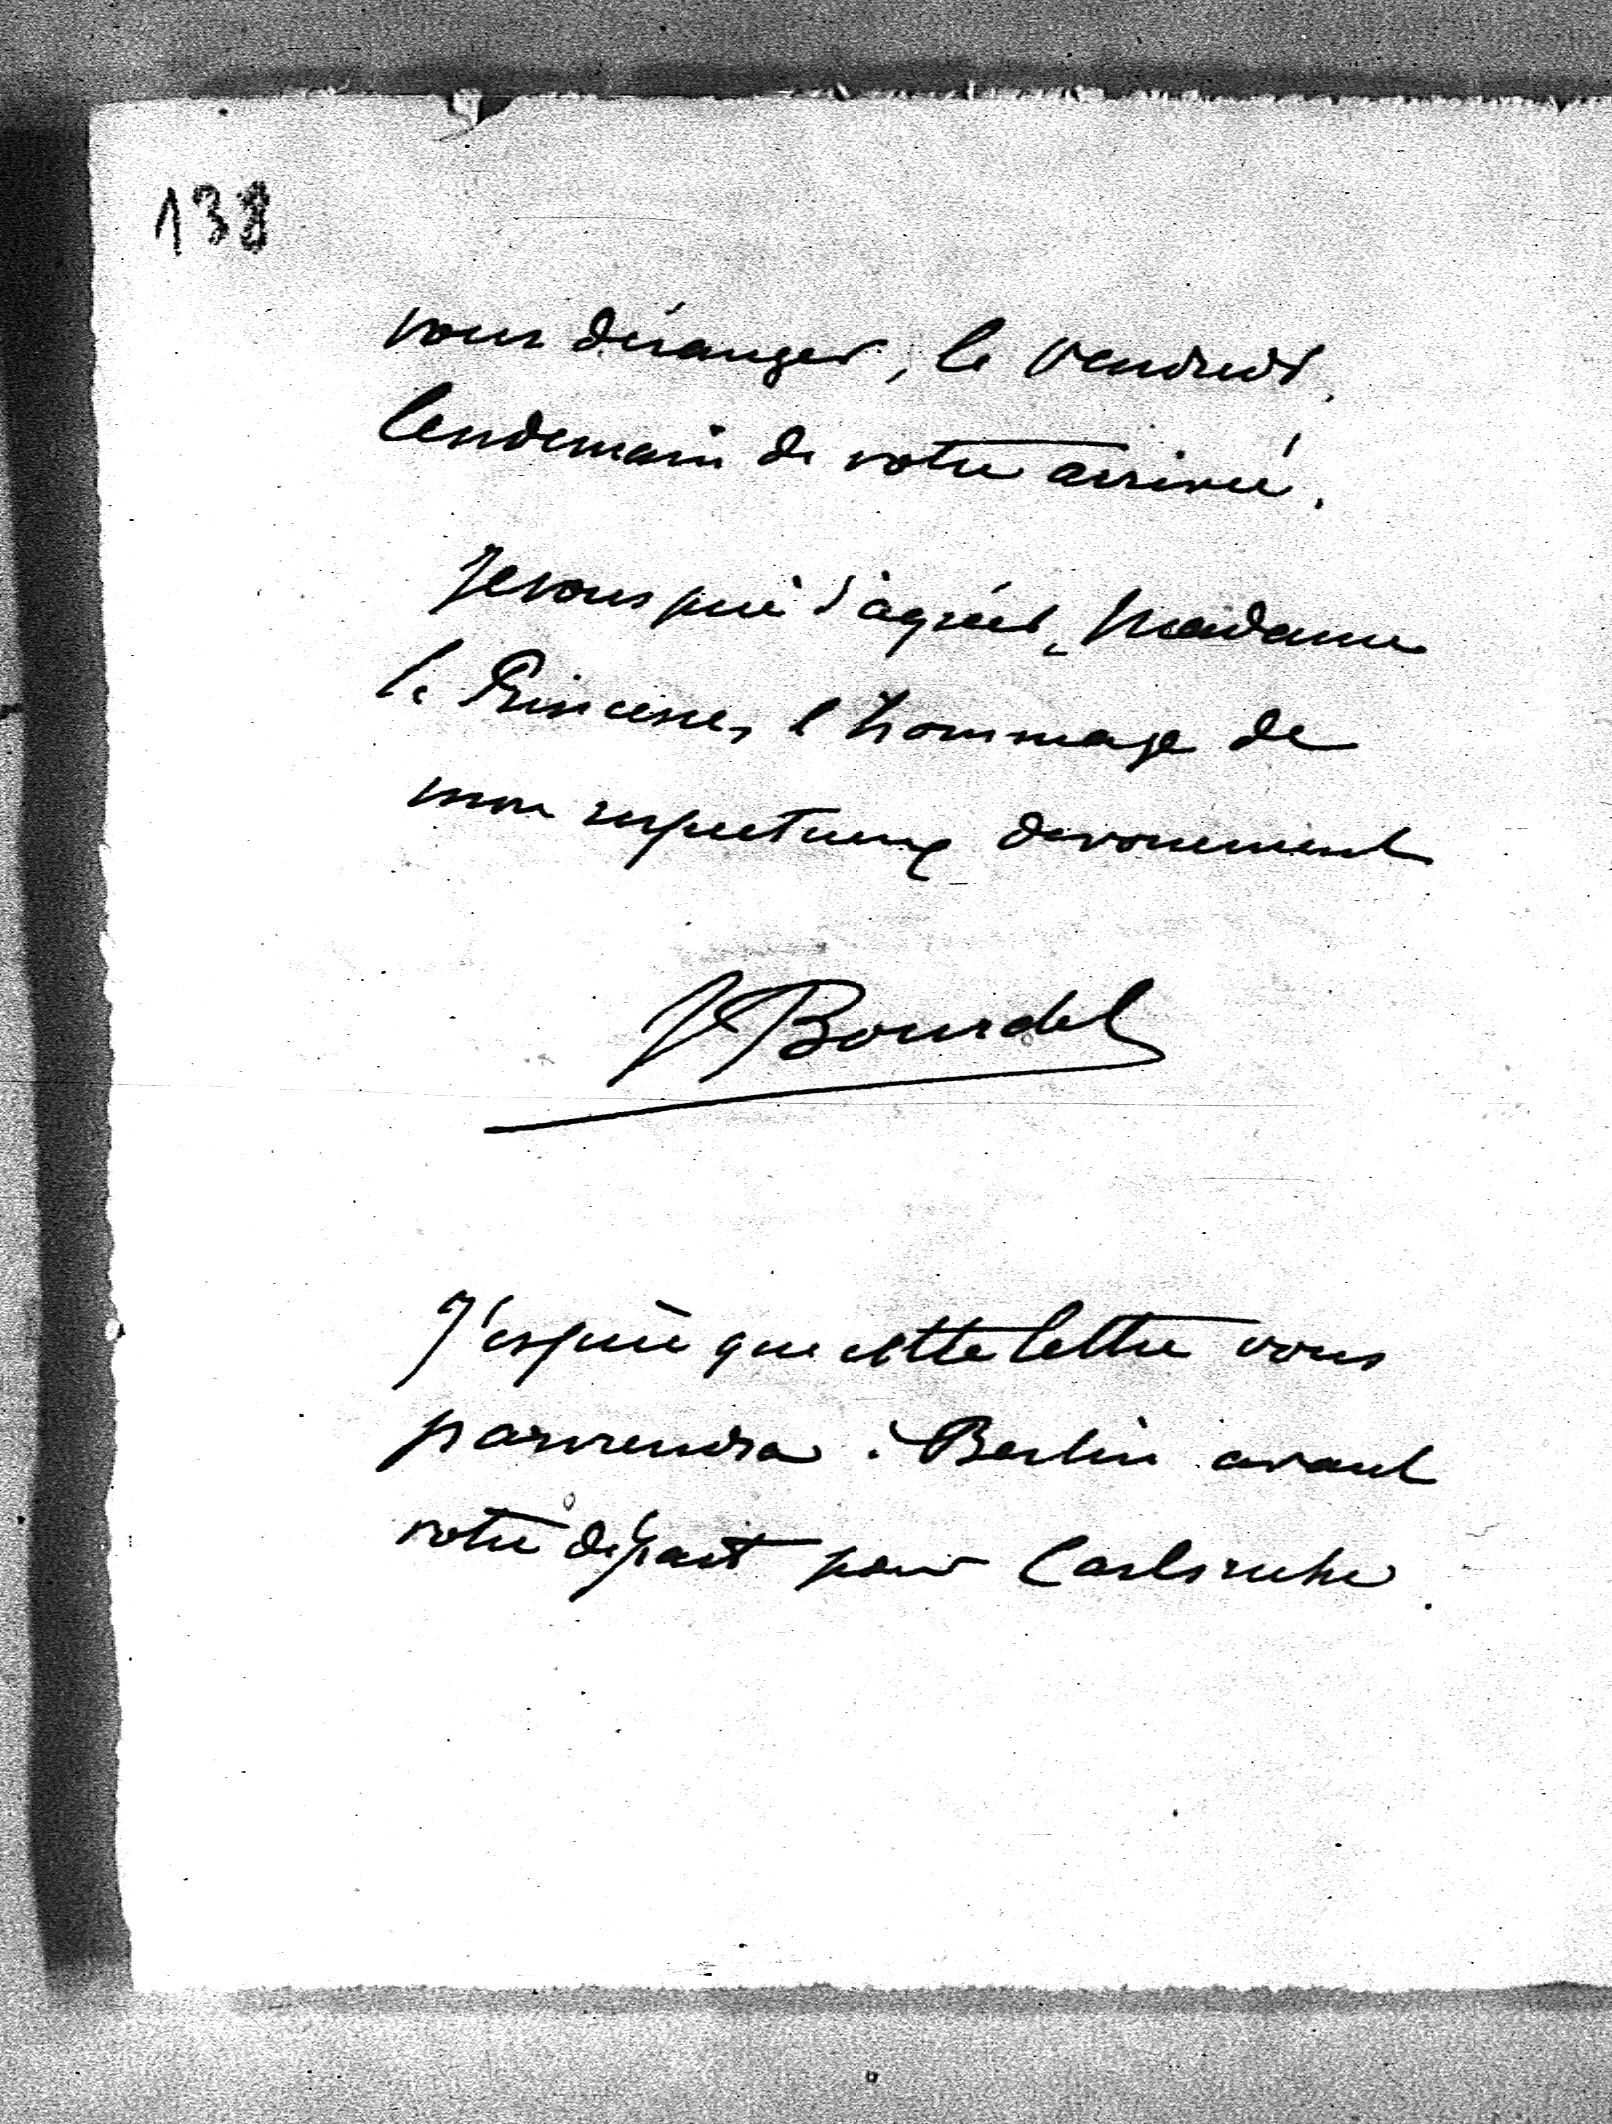 138
vous déranger, le vendredi,
lendemain de votre arrivée.
Je vous prie d'agréer, Madame
la Princesse, l'hommage de
mon respectueux dévouement
J Bourdel
J'espère que cette lettre vous
parviendra à Berlin avant
votre départ pour Carlsruhe.